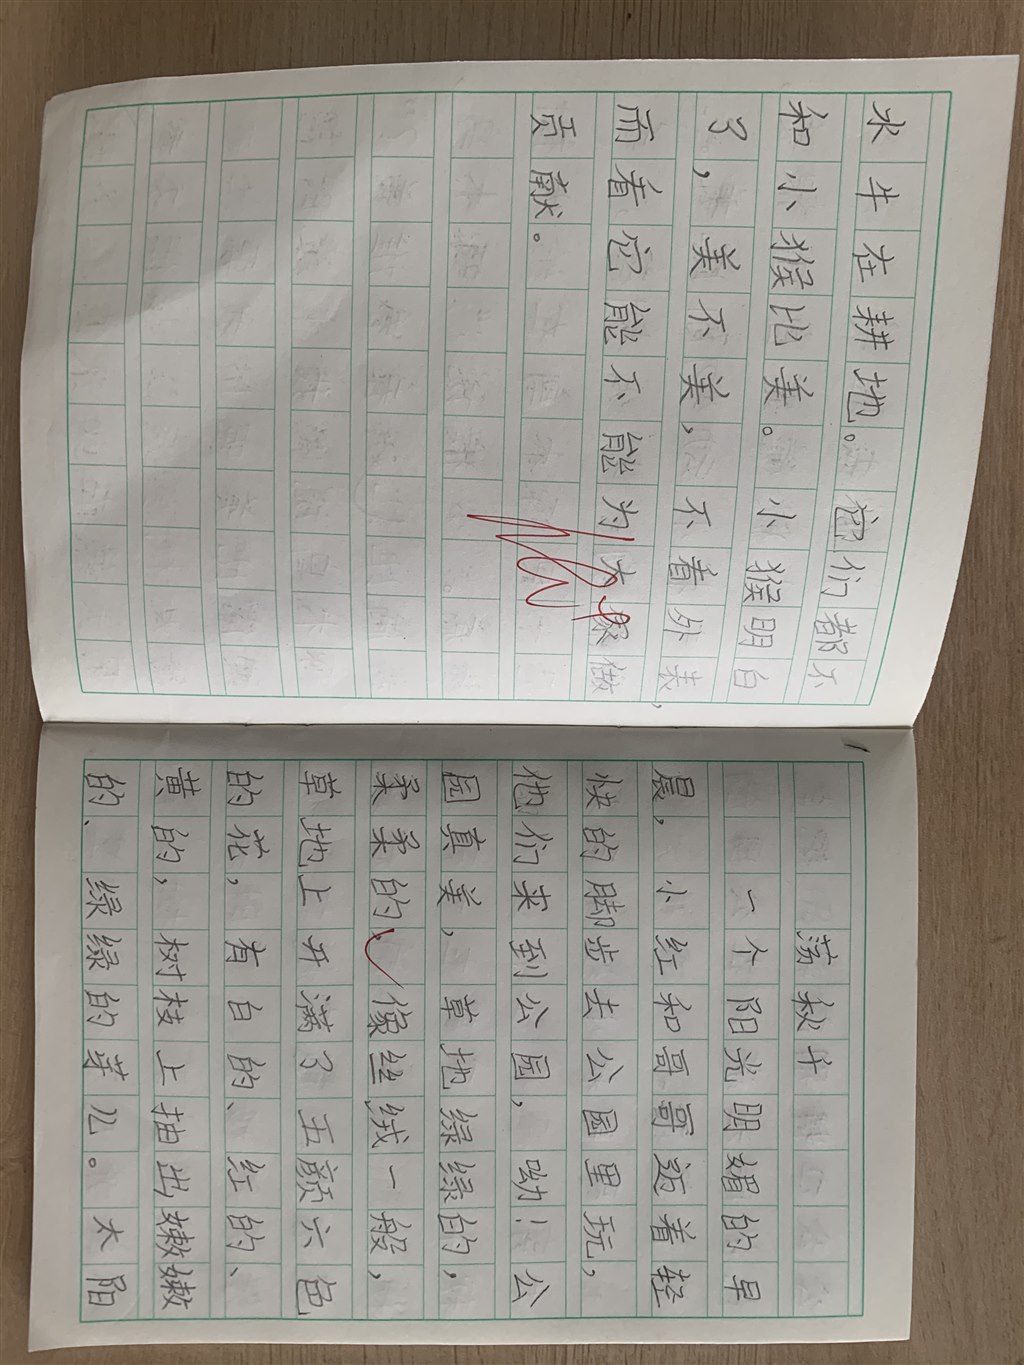 水牛在耕地。它们都不
和小猴比美。小猴明白
了,美不美,不看外表,
而看它能不能为大家做
贡献。
荡秋千
一个阳光明媚的早
晨,小红和哥哥迈着轻
快的脚步去公园里玩,
他们来到公园,呦!公
园真美,草地绿绿的,
柔柔的、像丝绒一般,
草地上开满了五颜六色
的花,有白的、红的、
黄的,树枝上抽出嫩嫩
的、绿绿的芽儿。太阳